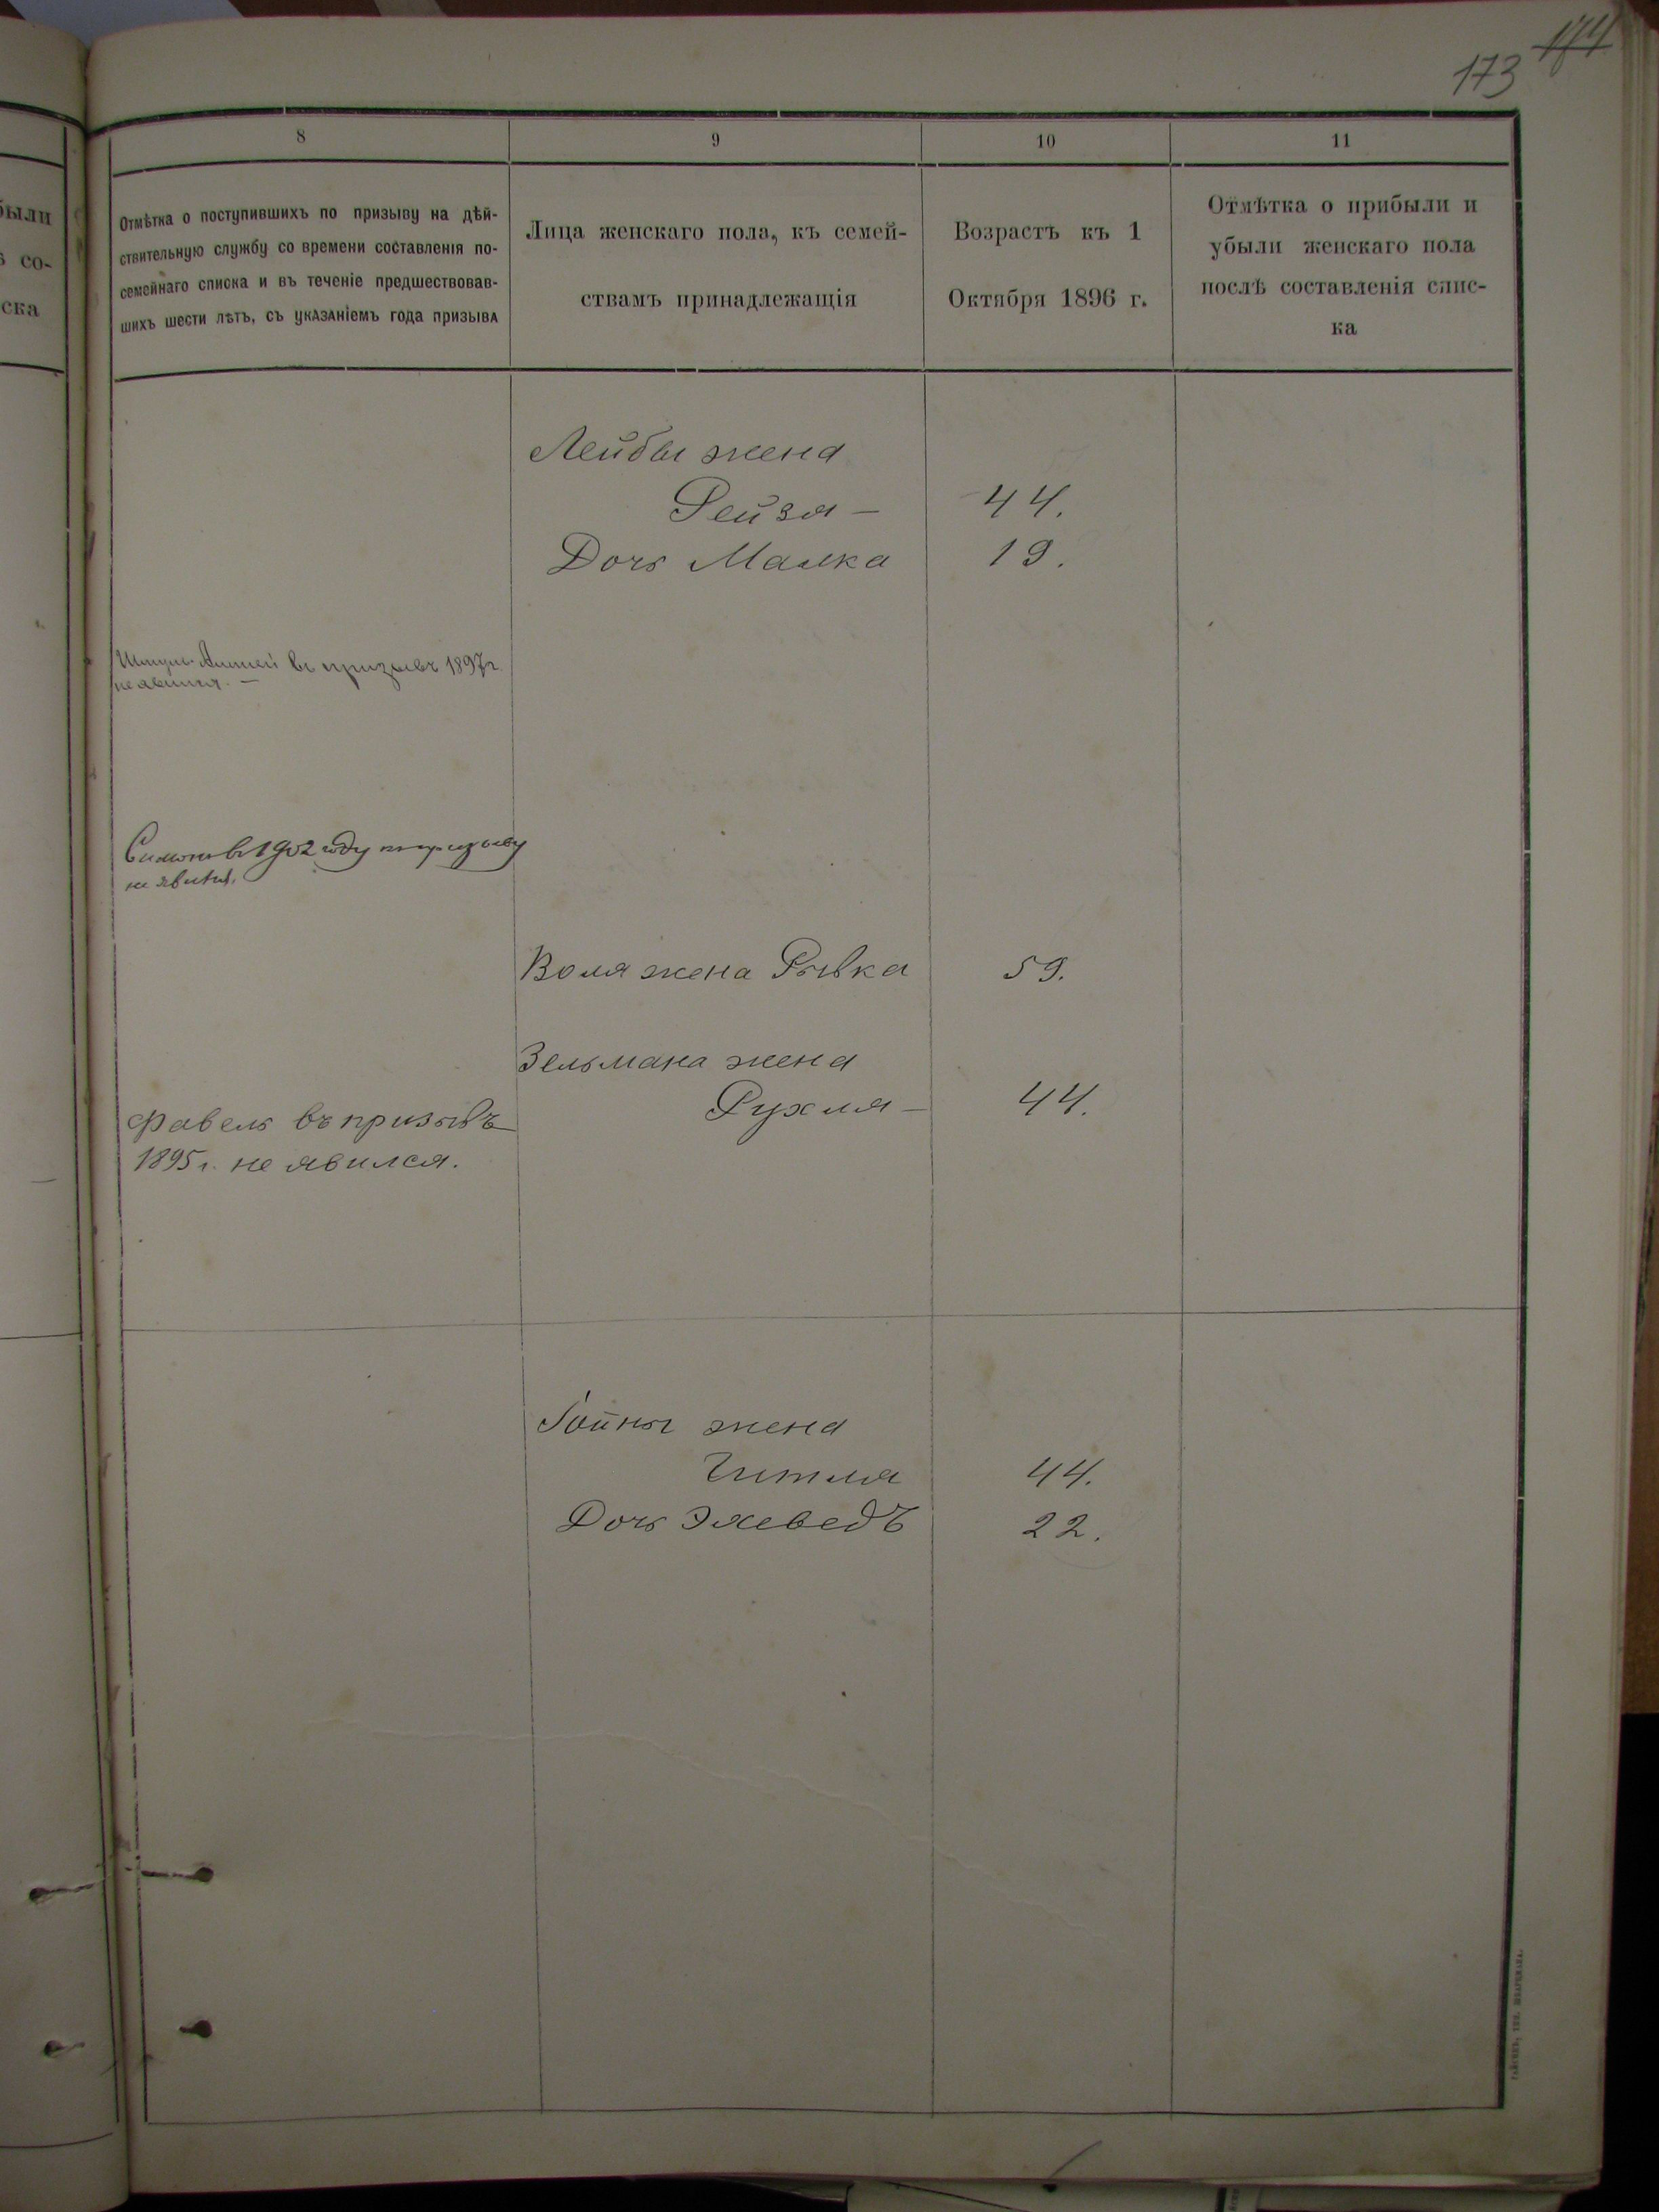 174
173
были
со-
ска
8
9
10
11
Отмѣтка о поступившихъ по призыву на дѣй-
ствительную службу со времени составленія по-
семейнаго списка и въ теченіе предшествовав-
шихъ шести лѣтъ, съ указаніемъ года призыва
Лица женскаго пола, къ семей-
ствамъ принадлежащія
Возрастъ къ 1
Октября 1896 г.
Отмѣтка о прибыли и
убыли женскаго пола
послѣ составленія спис-
ка
Лейбы жена
Рейзя — 44.
Дочь Малка 19.
въ призывъ 1897 г.
не явился. —
въ 1902 году къ призыву
не явился.
Воля жена Рывка 59.
Зельмана жена
Рухля — 44.
Фавель въ призывъ
1895 г. не явился.
Гойны жена
Гитля 44.
Дочь Эхеведъ 22.